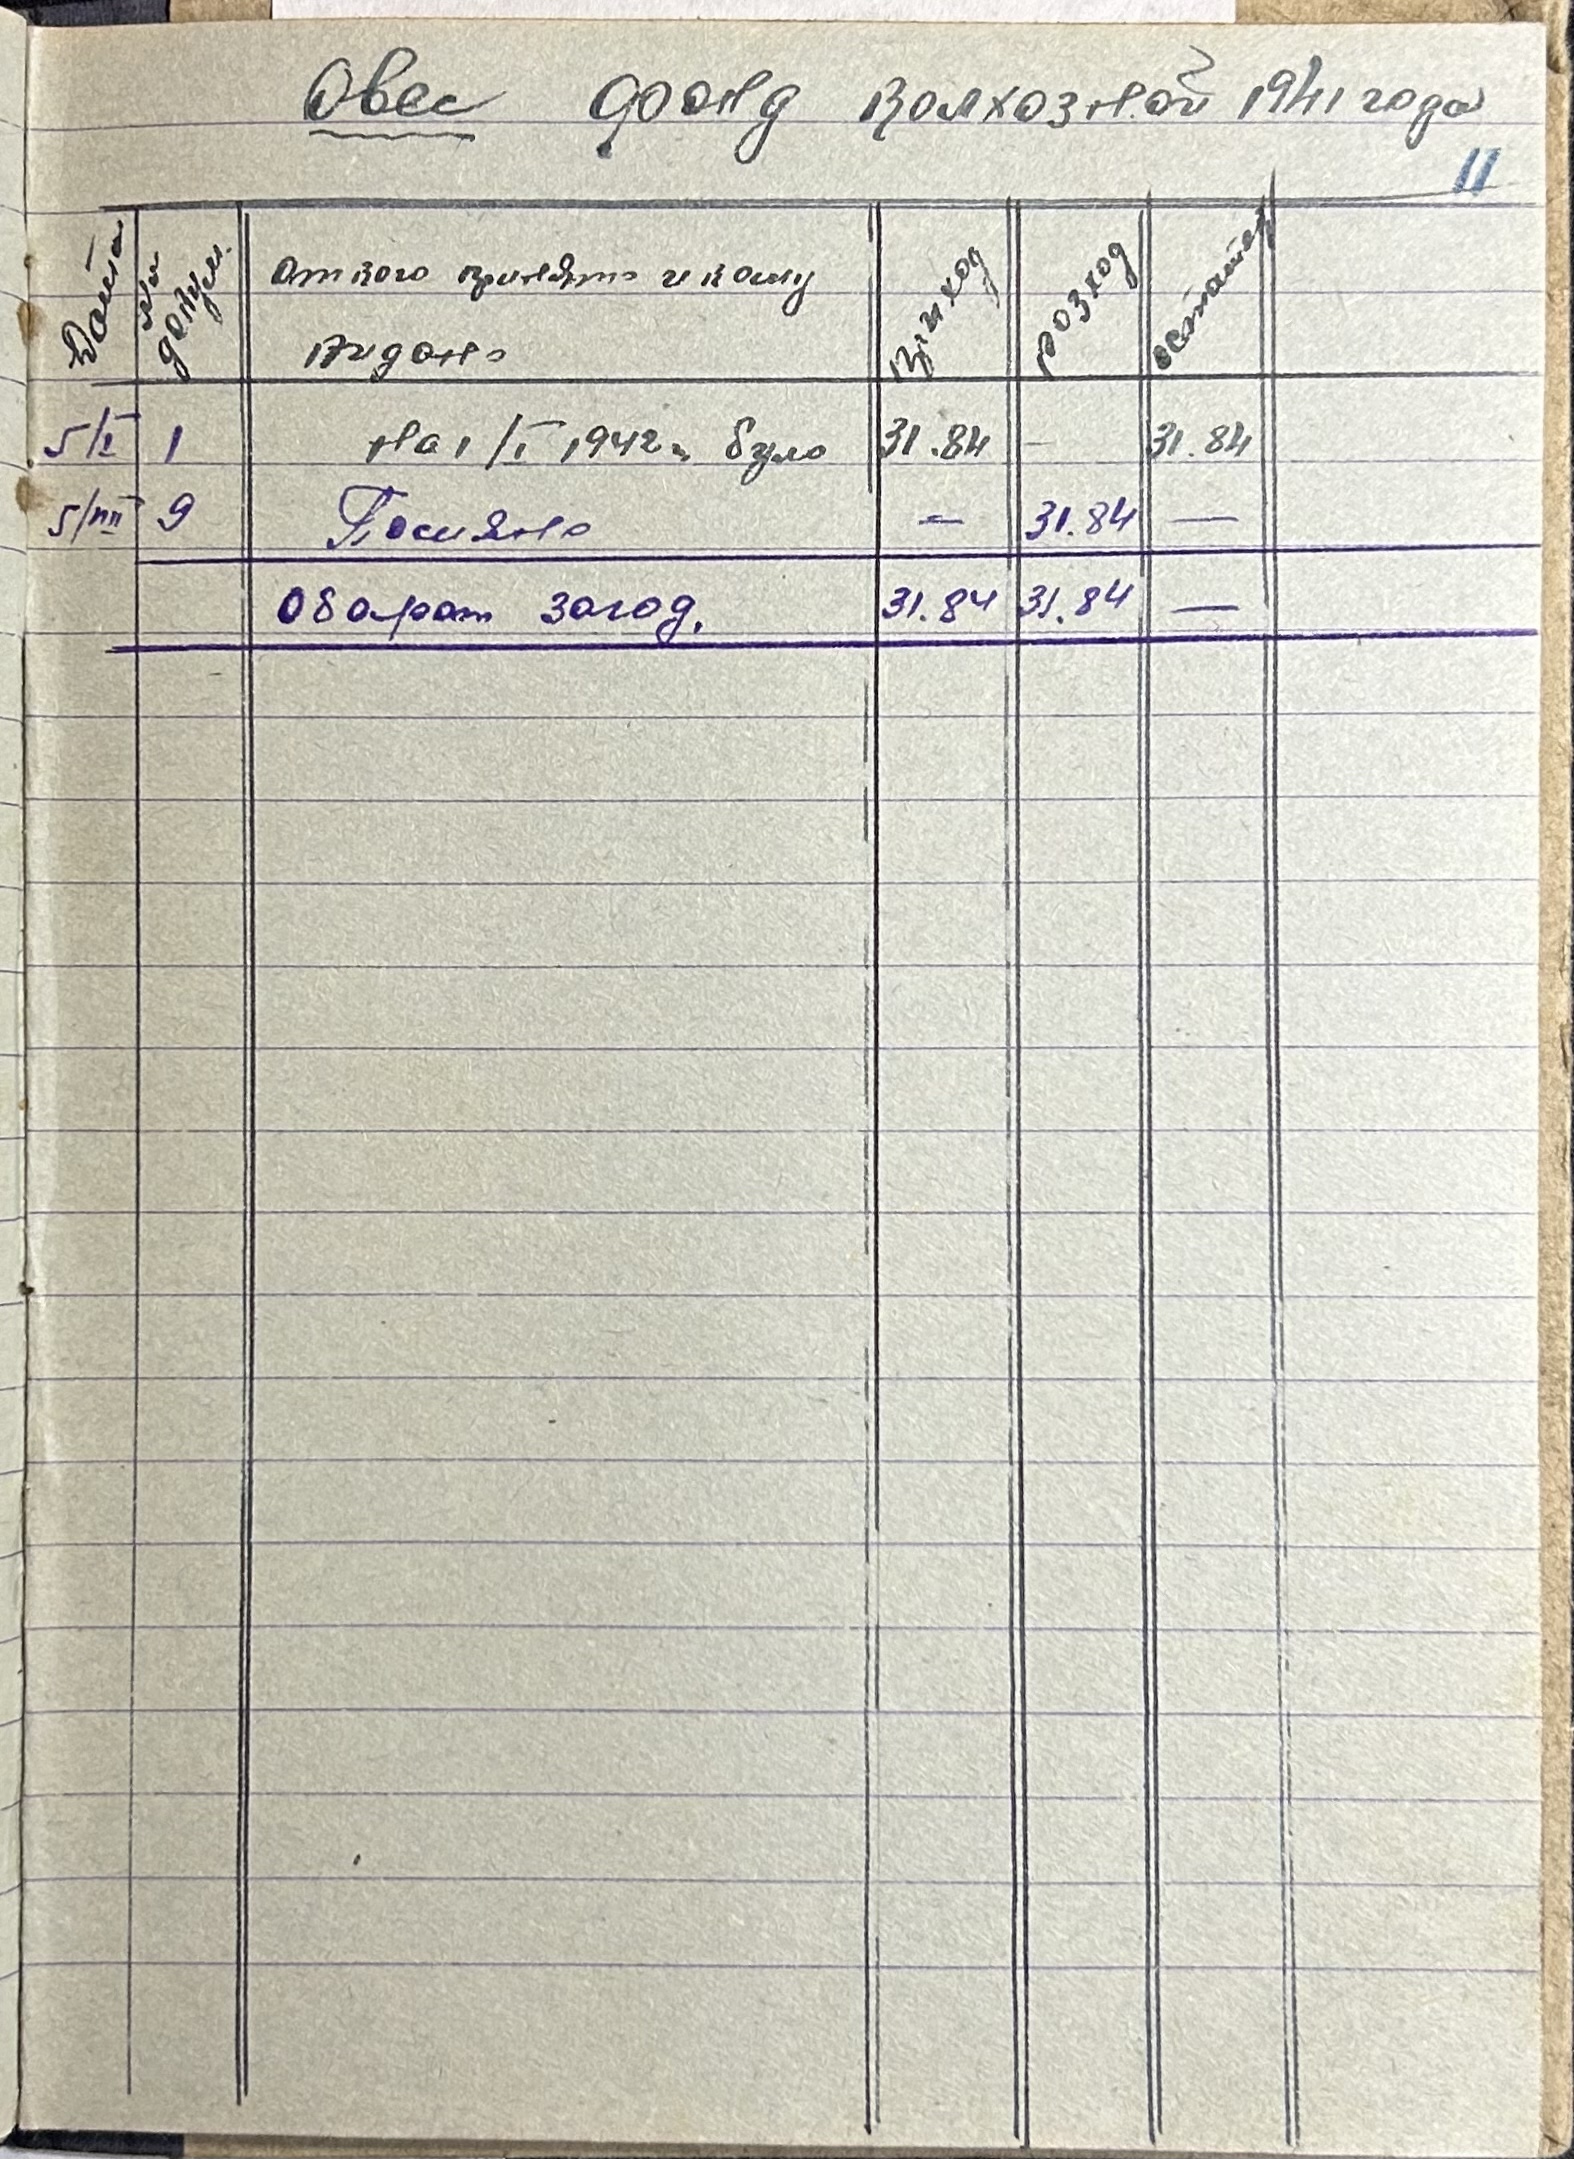 Овес фонд колхозной 1941 года
11
Дата № докум. от кого принято и кому приход розход остаток
видано
5/I 1 на 1/I 1942 г. було 31.84 — 31.84
5/III 9 Посияно — 31.84 —
Оборот за год. 31.84 31.84 —